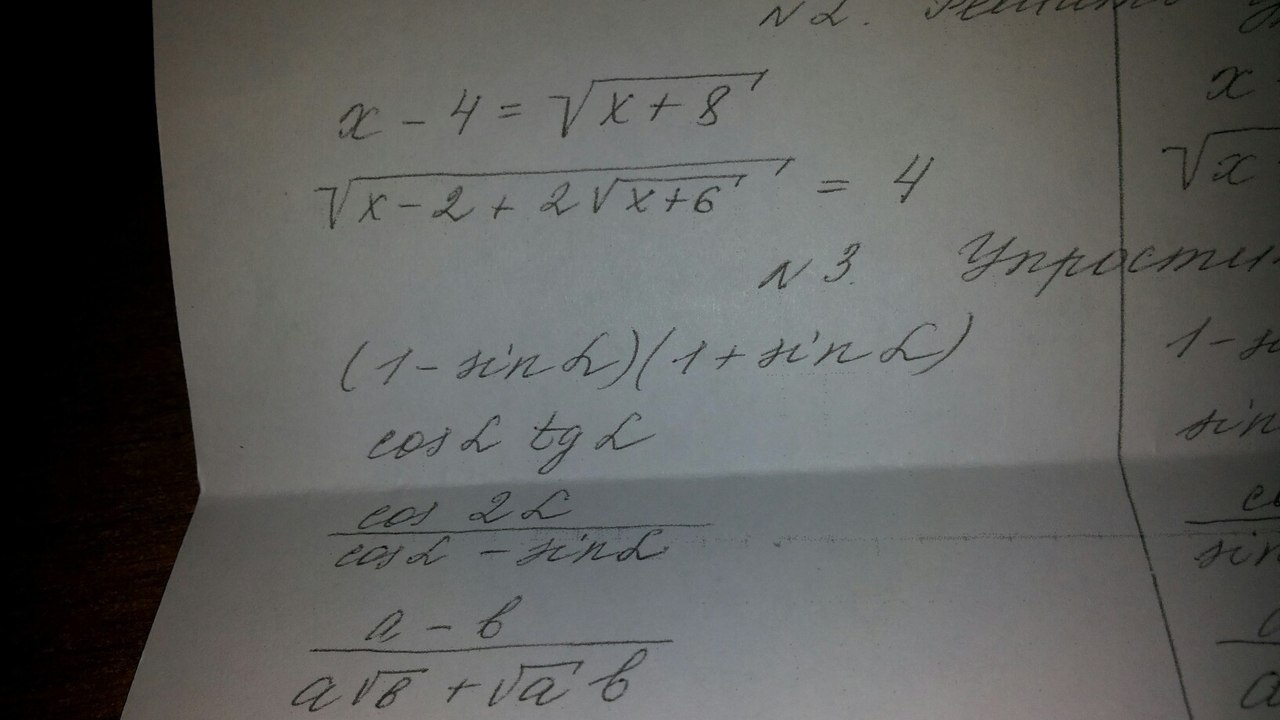 N 2. Решить
x - 4 = √(x + 8)
√(x - 2 + 2√(x + 6)) = 4
N 3. Упрости
(1 - sin α)(1 + sin α)
cos α tg α
cos 2α / (cos α - sin α)
(a - b) / (a√b + √a b)
x
√x
1 -
sin
sin
a